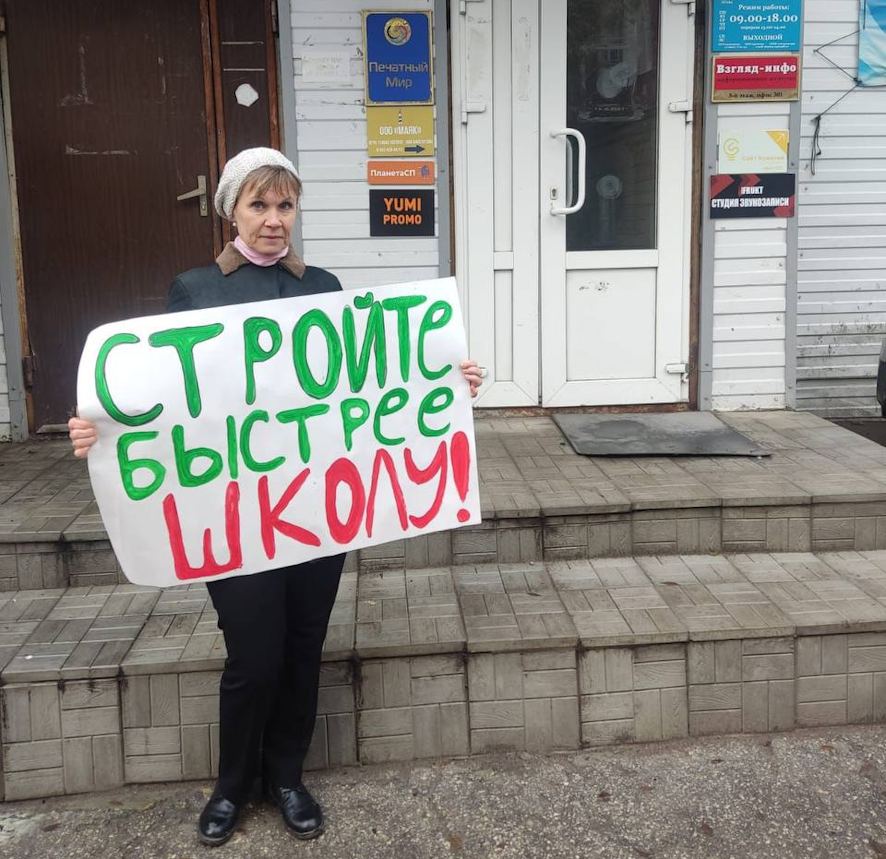 Печатный
Мир
ООО «МАЯК»
ПланетаСП
YUMI
PROMO
Режим работы:
09.00-18.00
ВЫХОДНОЙ
Взгляд-инфо
3-й этаж, офис 301
FRUKT
СТУДИЯ ЗВУКОЗАПИСИ
СТРОЙТЕ
БЫСТРЕЕ
ШКОЛУ!